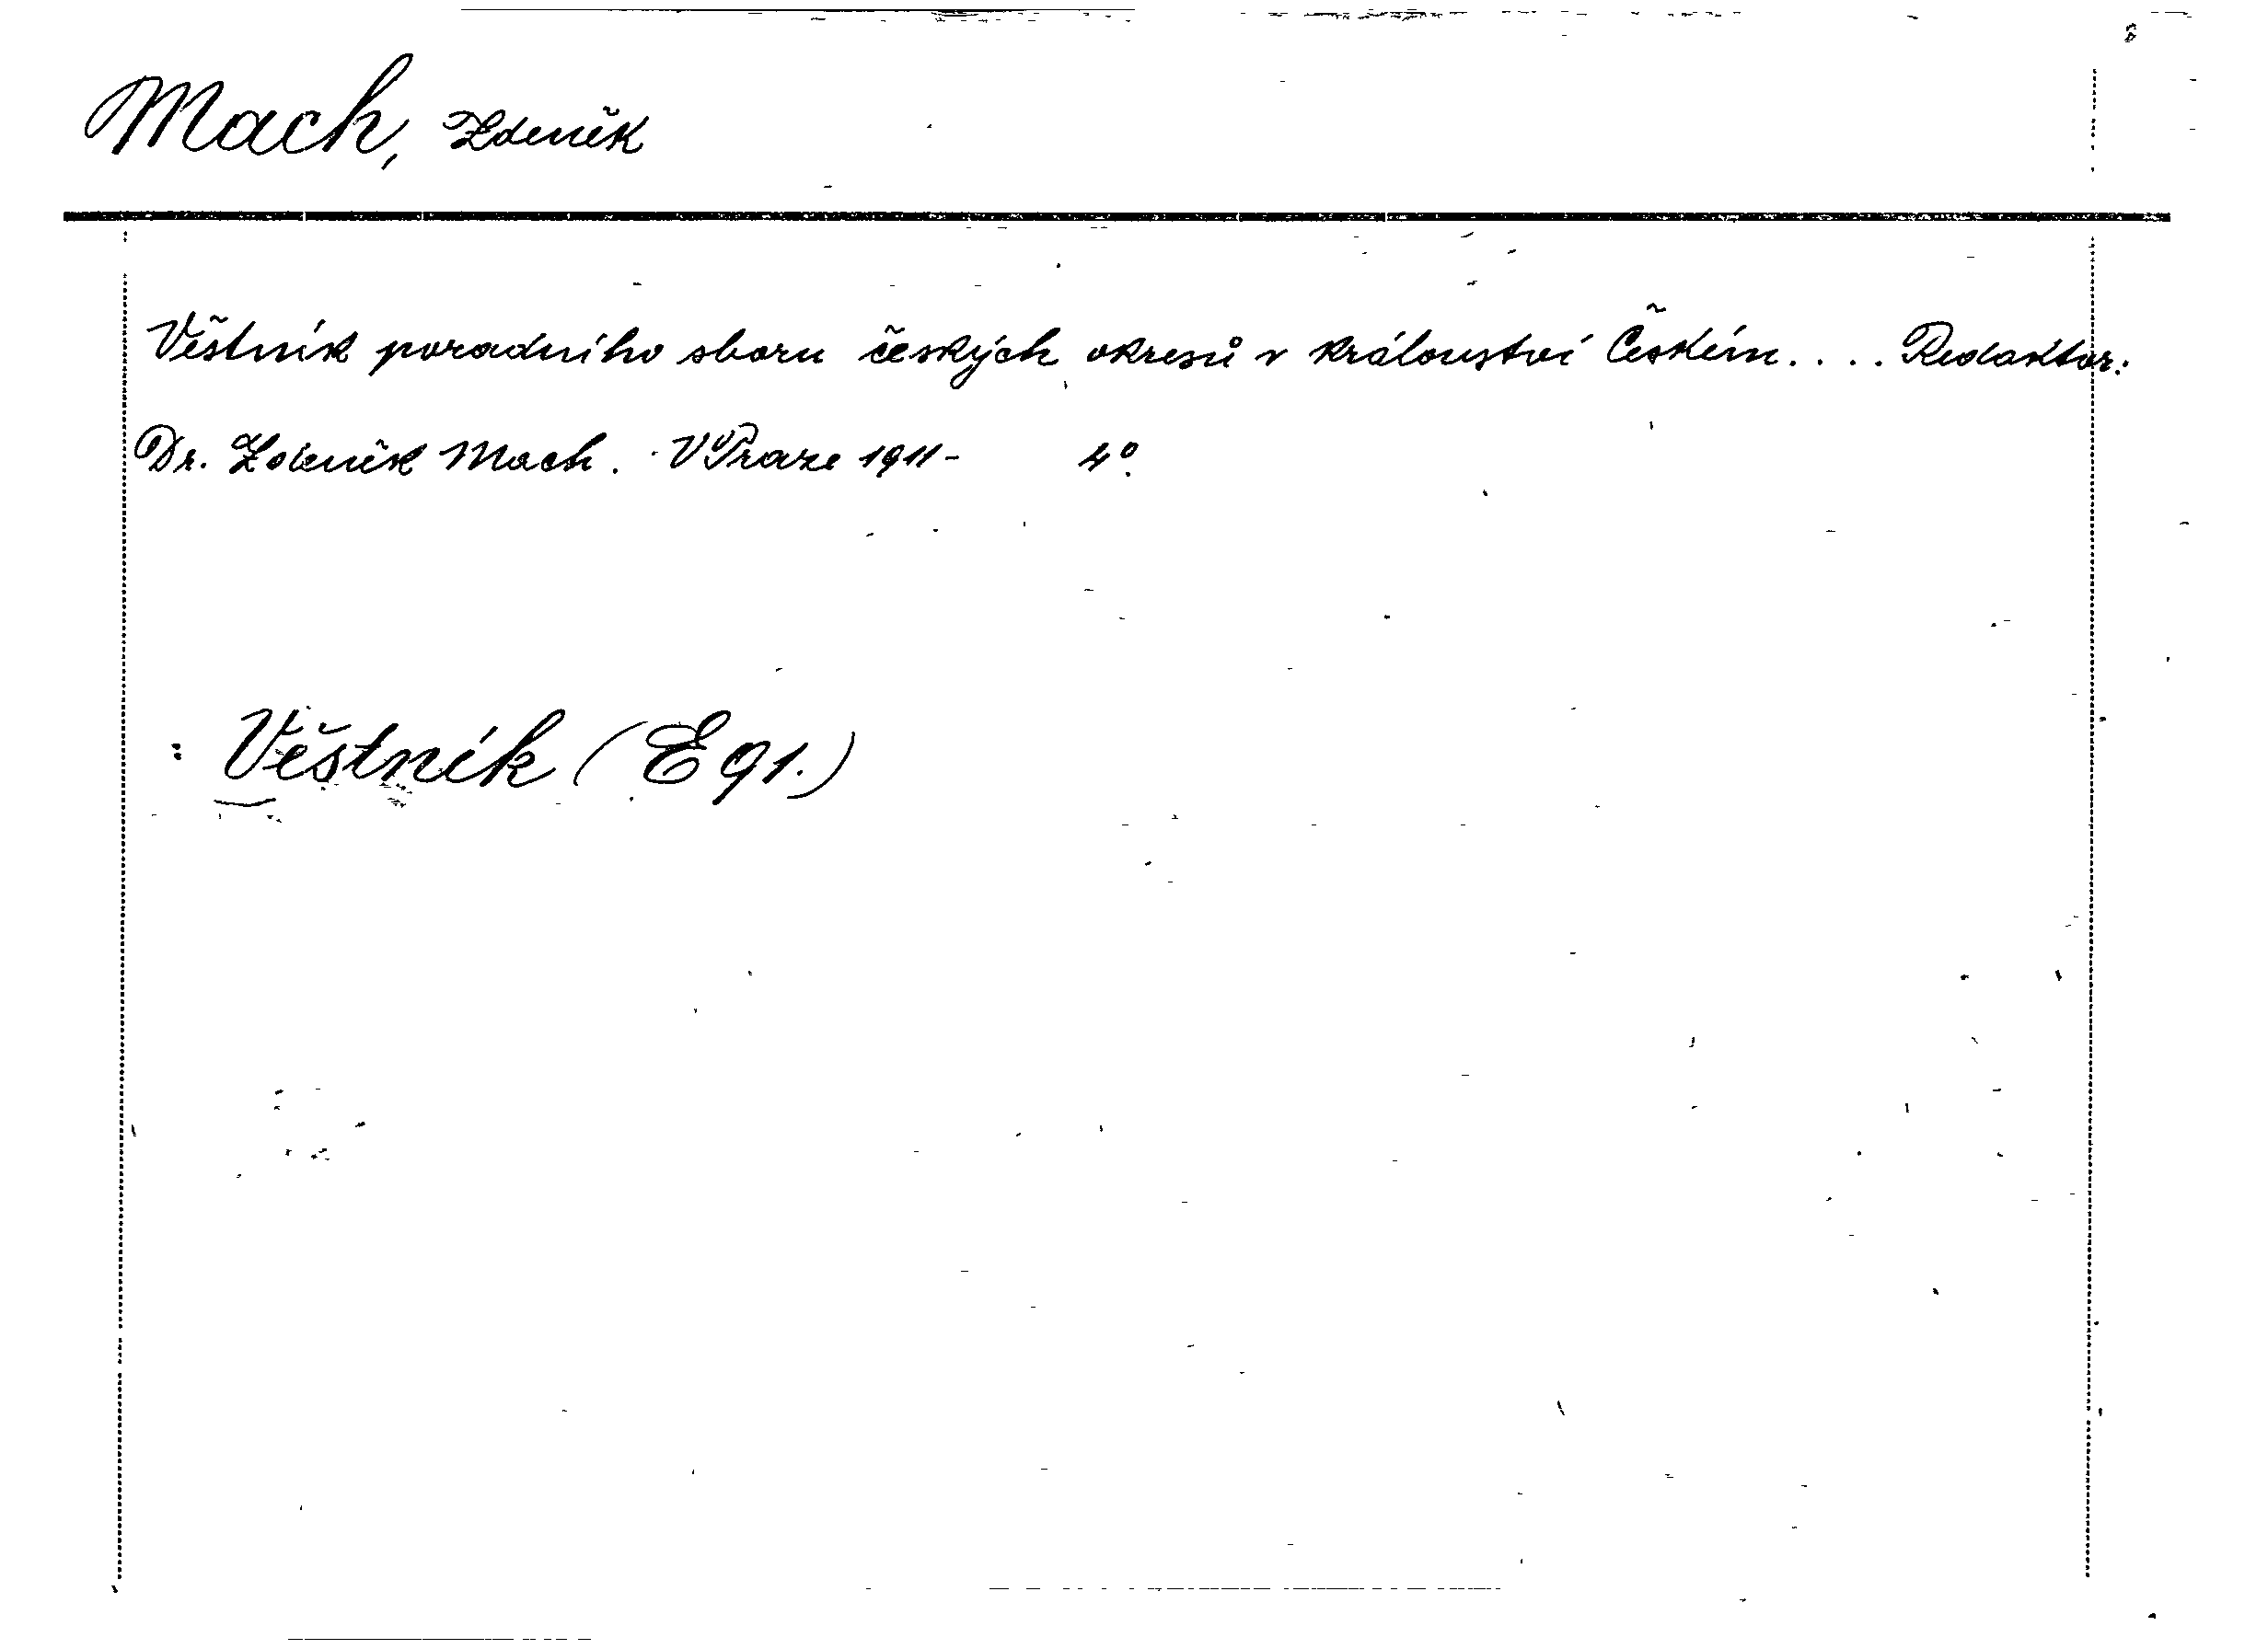 Mach, Zdeněk
Věstník poradního sboru českých okresů v království Českém.... Redaktor:
Dr. Zdeněk Mach. V Praze 1911- 4°.
: Věstník (E 91.)